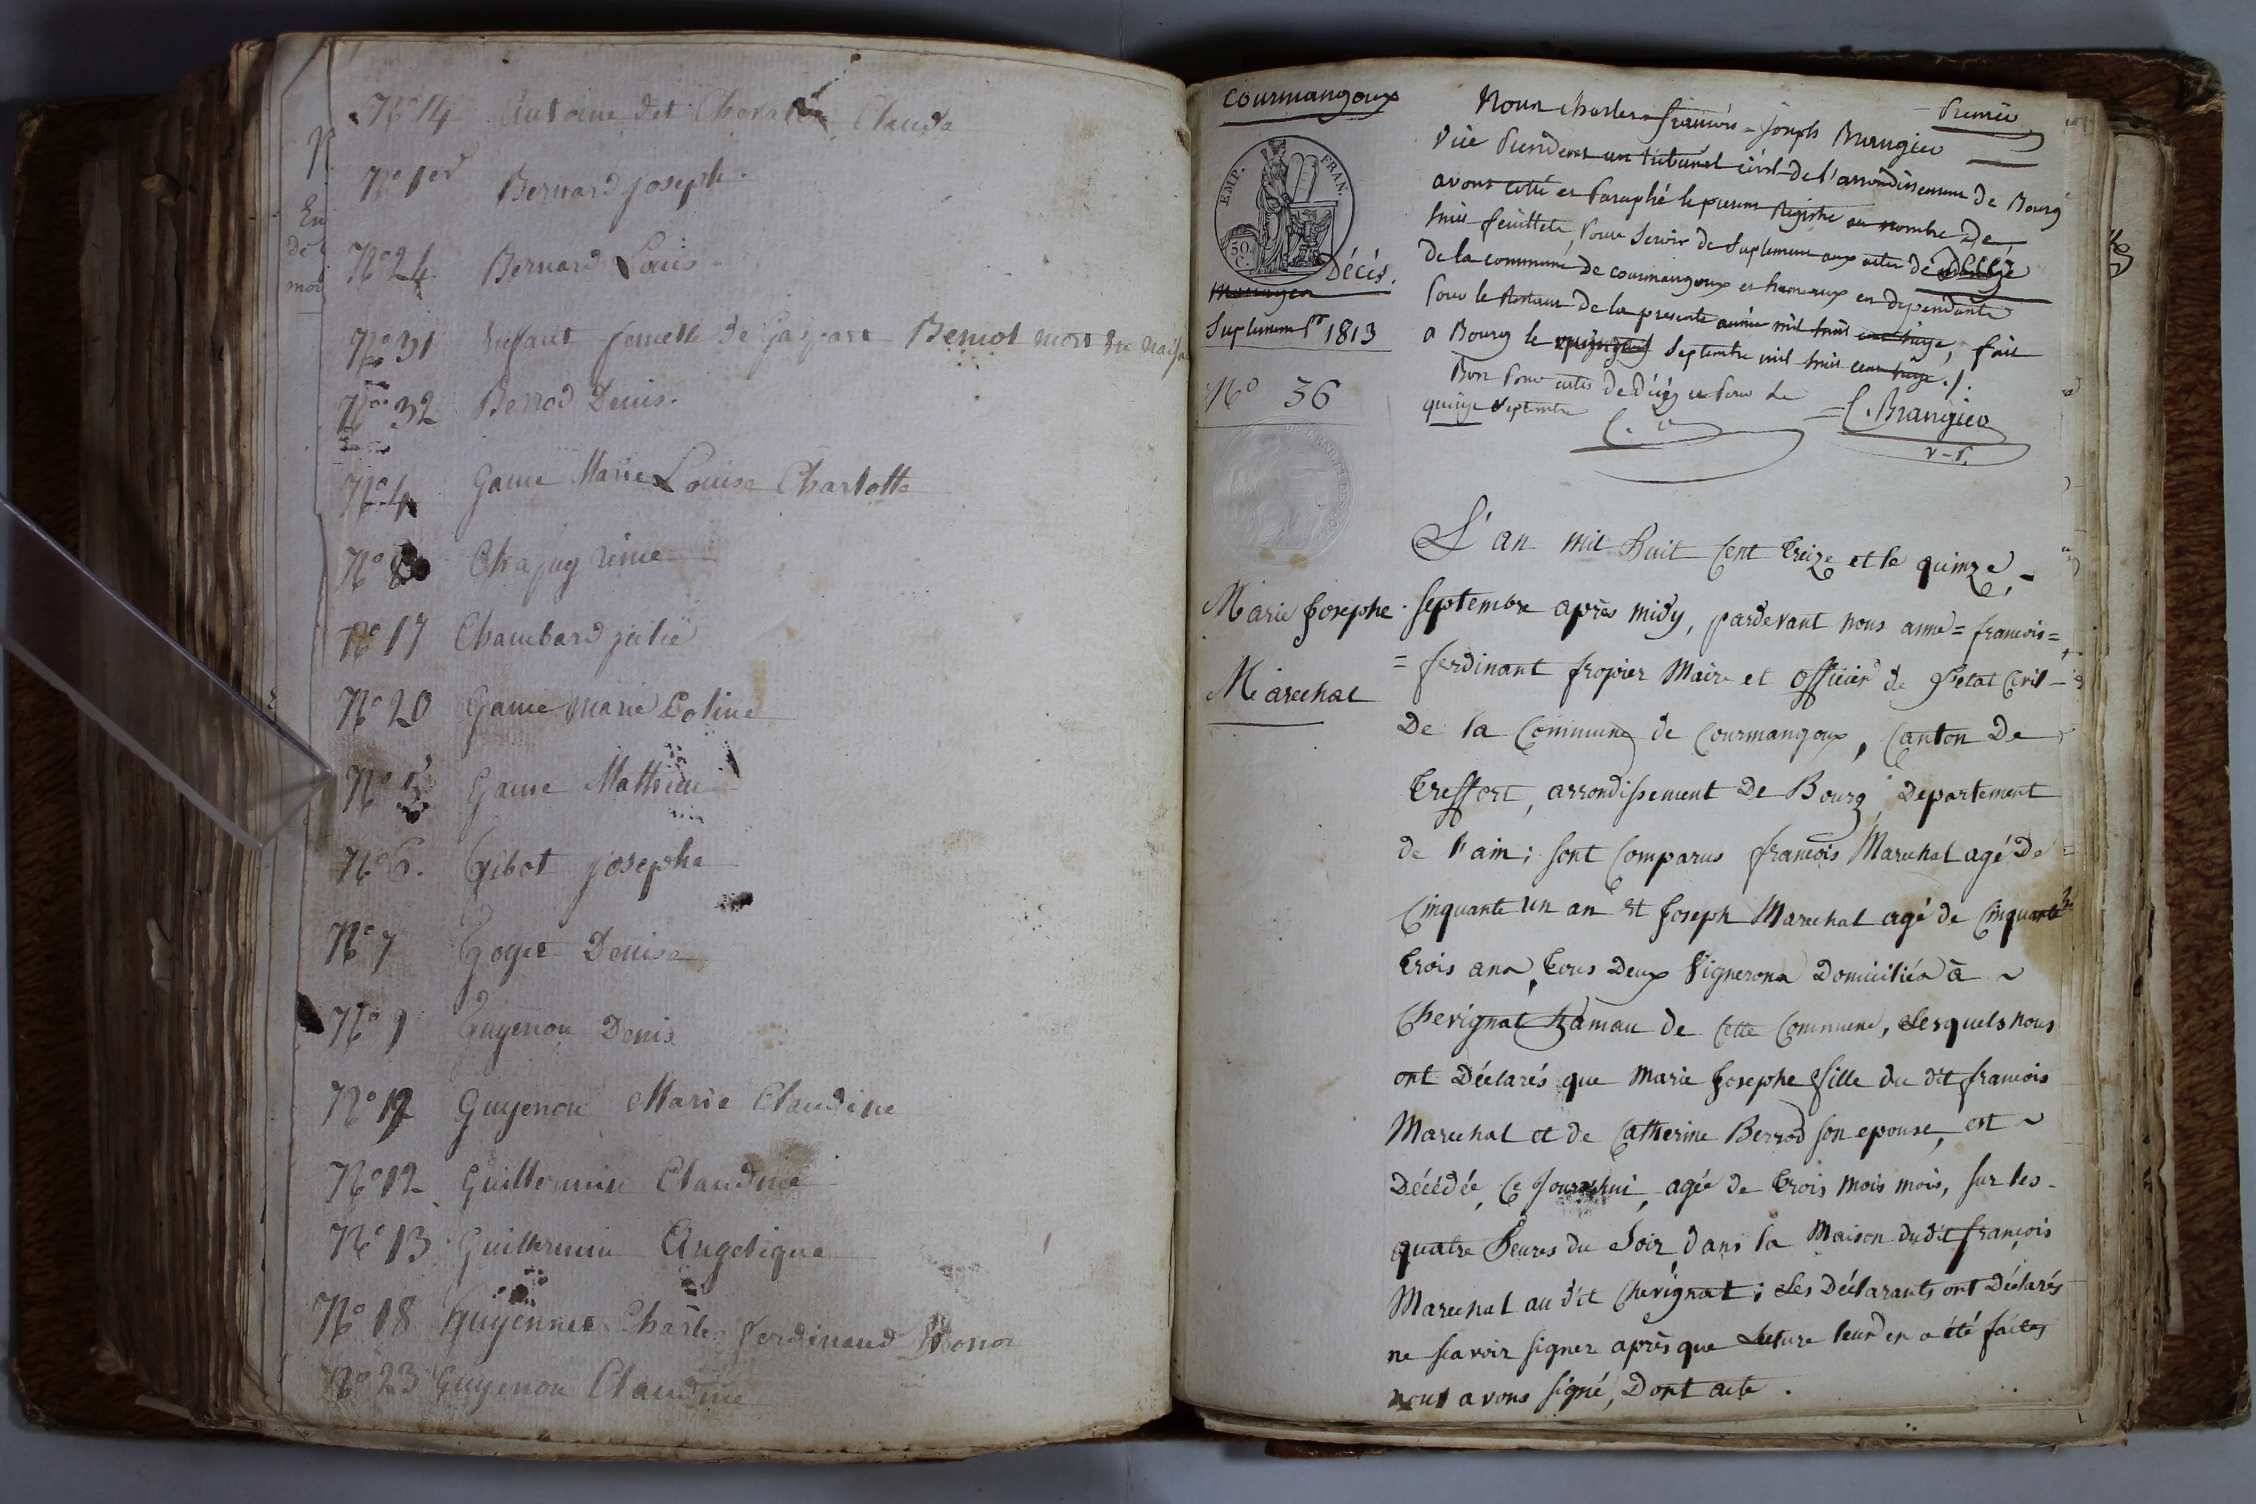 N° 14 Antoine dit Chevalier Claude
N° 1er Bernard joseph
N° 24 Bernard Louis
N° 31 Enfant femelle de Gaspard Berrod mort
N° 32 Berrod Denis.
N° 4 Game Marie Louise Charlotte
N° 8 Chapuy
N° 17 Chambard julie
N° 20 Game Marie
N° 5 Game Mathieu
N° 6. Gibot josephe
N° 7 Goyet Denise
N° 9 Guyenon Denis
N° Guyenon Marie Claudine
N° 12 Guillermin Claudine
N° 13 Guillermin Angelique
N° 18 Guyennet Charles ferdinand
N° 23 Guyenon Claudine
En
de
moi
Courmangoux
EMP. FRAN.
50 C.
Décès.
Mariages
Suplement pr 1813
N° 36
Marie Josephe
Marechal
Premier
Nous Charles = françois = joseph Brangier
Vice President au tribunal civil de l'arrondissement de Bourg
avons cotté et Paraphé le present Registre au nombre de
huit feuillets, Pour Servir de Suplement aux actes de Décès
de la commune de courmangoux et hameaux en dependants
Pour le Restant de la presente année mil huit cent treize, fait
a Bourg le Septembre mil huit cent treize ./.
Bon Pour actes de Décès et Pour le
quinze Septembre
C. Brangier
v-P.
L'an mil huit Cent treize et le quinze,
Septembre après midy, pardevant nous anne = francois =
= ferdinant fropier Maire et officier de l'etat Civil
De la Commune de Courmangoux, Canton De
Treffort, arrondissement De Bourg Departement
de l'ain; sont Comparus francois Marechal agé De
Cinquante un an et Joseph Marechal agé de Cinquante
trois ans, tous Deux Vignerons Domiciliés à
Chevignat hamau de Cette Commune, Lesquels nous
ont Déclarés que Marie Josephe fille du dit francois
Marechal et de Catherine Berrod son epouse, est
Décédée, Ce Jourdhui, agée de trois mois mois, sur les
quatre heures du Soir, dans la Maison du dit françois
Marechal au dit Chevignat; Les Déclarants ont Déclarés
ne scavoir signer après que Lecture leur en a été faites
nous avons signé, Dont acte.